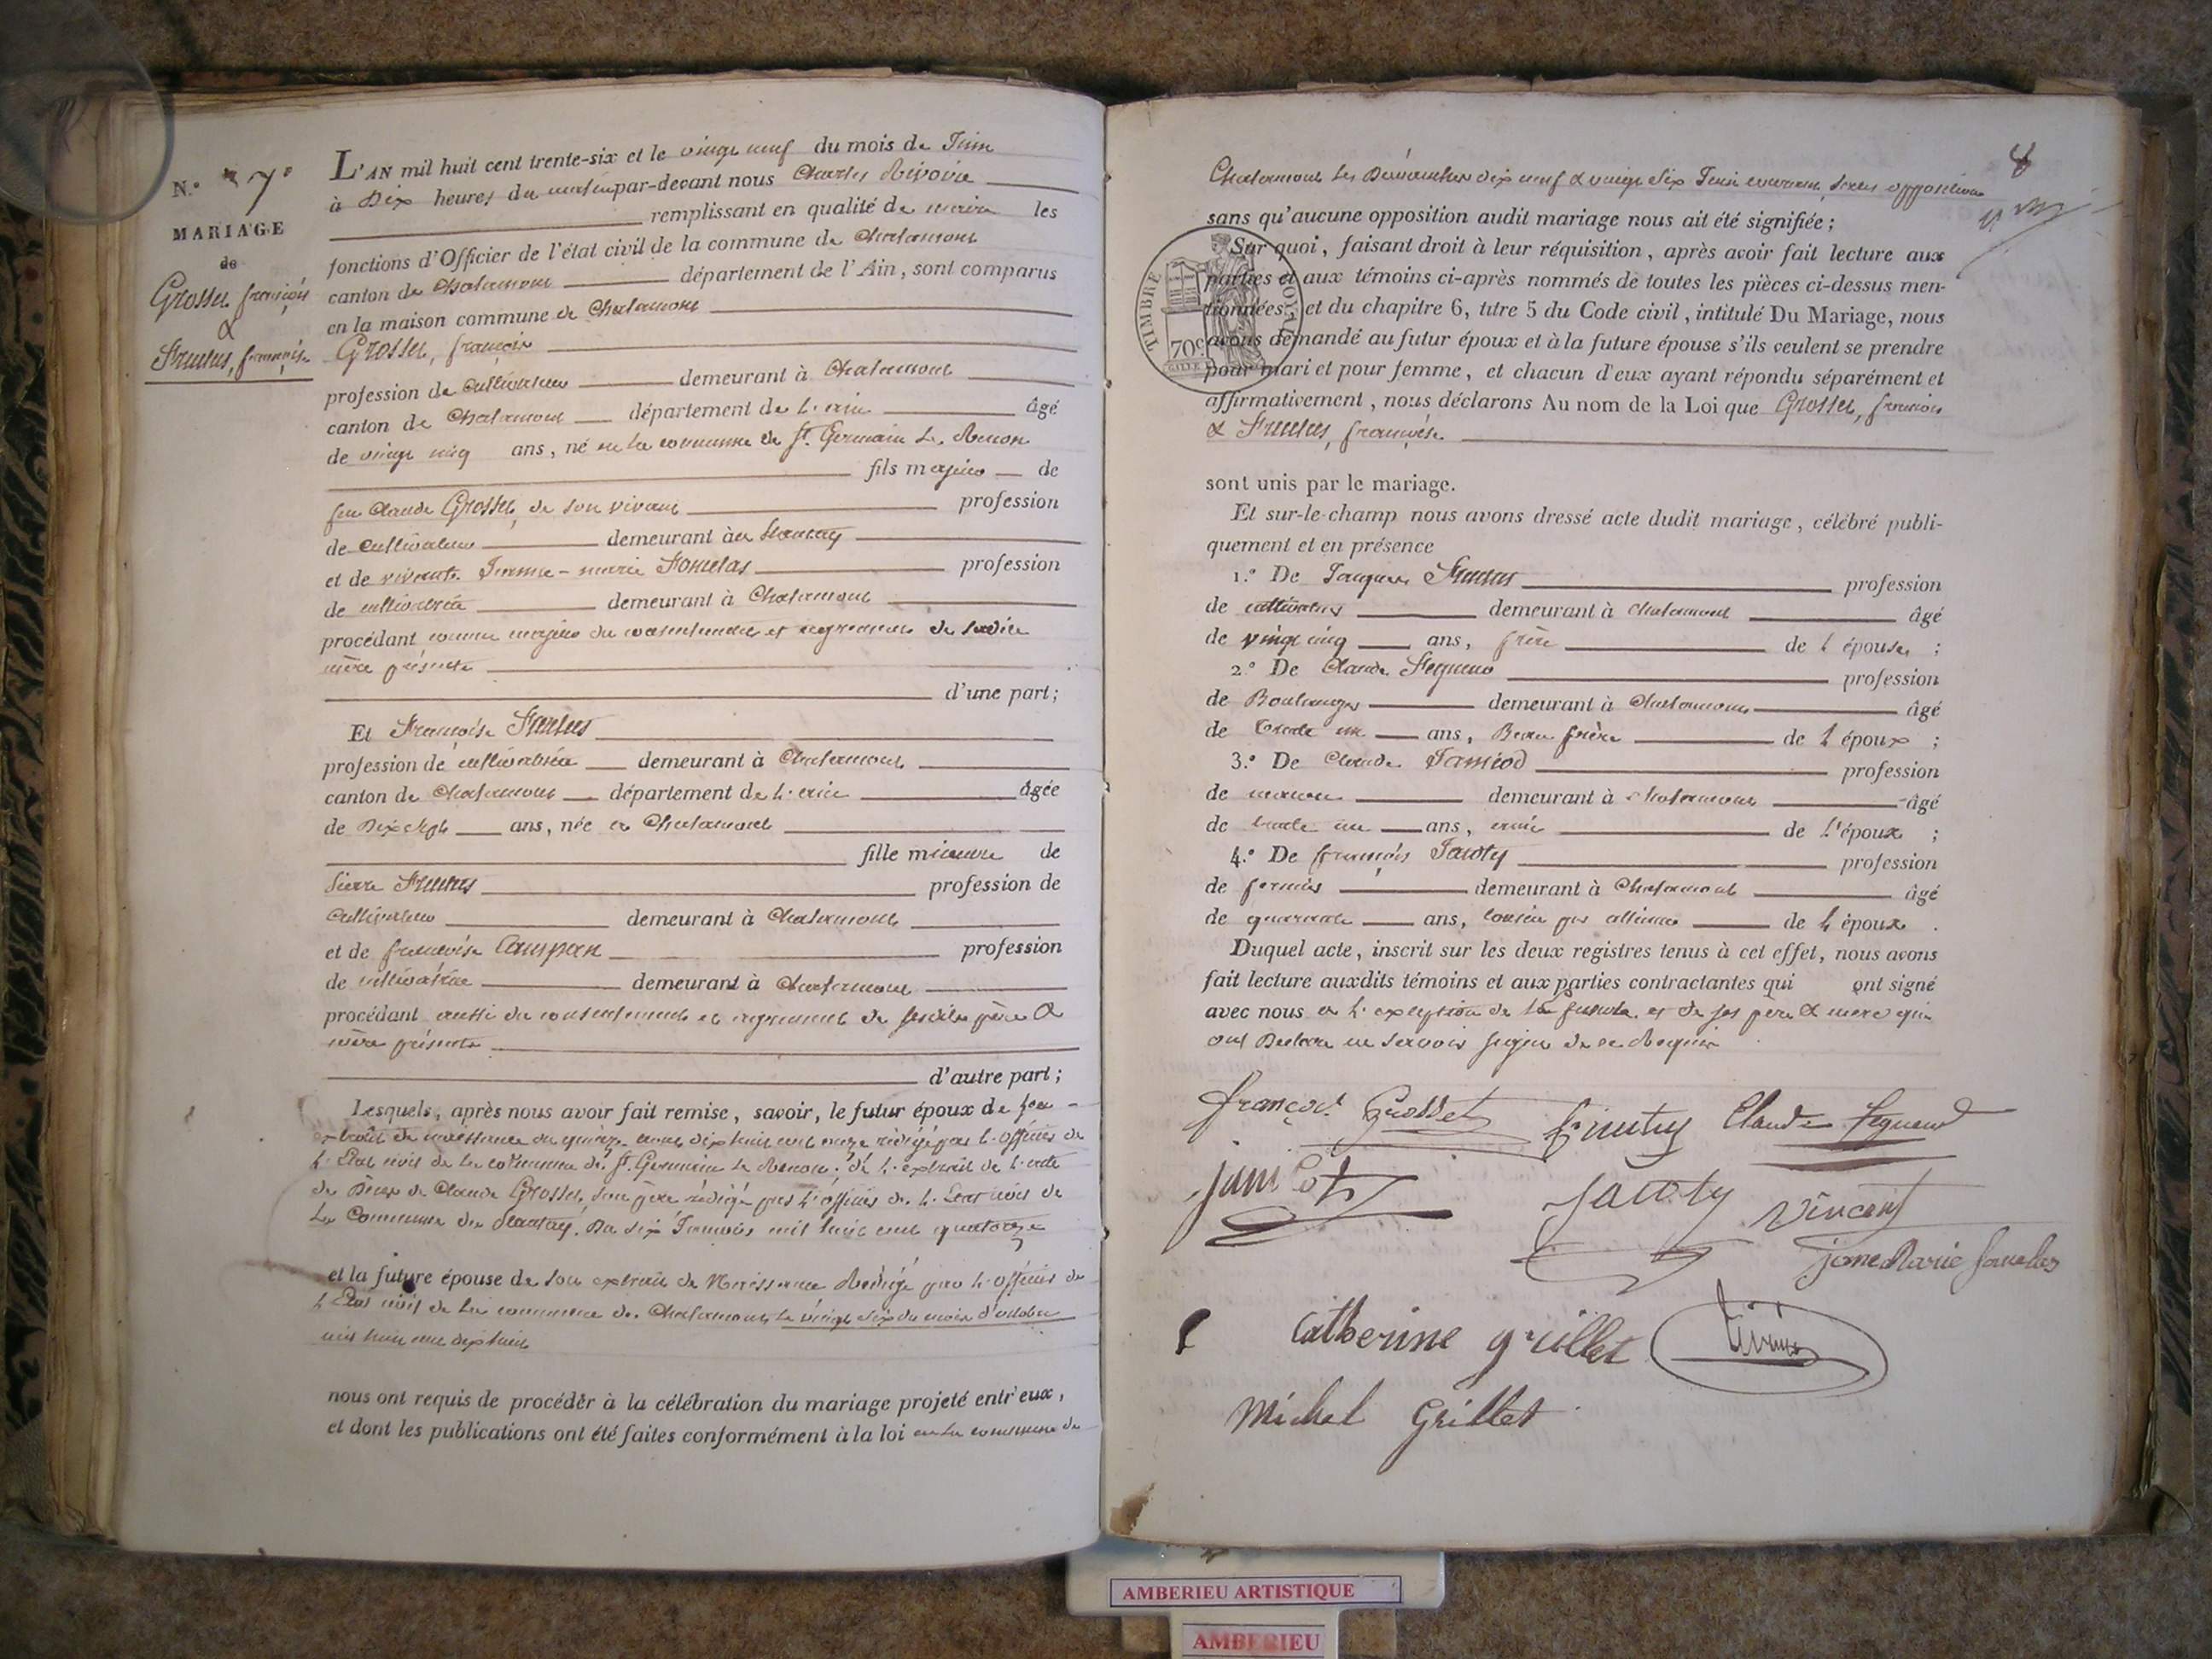 N.° 7°
MARIAGE
de
Grosset françois
&
françoise
L'AN mil huit cent trente-six et le vingt neuf du mois de Juin
à Dix heures du matin par-devant nous Charles Rivoire
remplissant en qualité de maire les
fonctions d'Officier de l'état civil de la commune de Chalamont
canton de Chalamont département de l'Ain, sont comparus
en la maison commune de Chalamont
Grosset, françois
profession de cultivateur demeurant à Chalamont
canton de Chalamont département de l'ain âgé
de vingt cinq ans, né en la commune de St. Germain le Renon
fils majeur de
feu Claude Grosset, de son vivant profession
de cultivateur demeurant à
et de vivante Jeanne-marie profession
de cultivatrice demeurant à Chalamont
procédant comme majeur du consentement et agrément de sadite
mère présente
d'une part;
Et Françoise
profession de cultivatrice demeurant à Chalamont
canton de Chalamont département de l'ain âgée
de Dix sept ans, née à Chalamont
fille mineure de
Pierre profession de
Cultivateur demeurant à Chalamont
et de françoise Campan profession
de cultivatrice demeurant à Chalamont
procédant aussi du consentement et agrément de sesdits père &
mère présents
d'autre part;
Lesquels, après nous avoir fait remise, savoir, le futur époux de son
extrait de naissance du quinze août dix huit cent onze rédigé par l'officier de
l'Etat civil de la commune de St. Germain le Renon; de l'extrait de l'acte
de Décès de Claude Grosset, son père rédigé par l'officier de l'Etat civil de
la Commune de Du six Janvier mil huit cent quatorze
et la future épouse de son extrait de Naissance Rédigé par l'officier de
l'Etat civil de la commune de Chalamont le vingt six du mois d'octobre
mil huit cent dix huit
nous ont requis de procéder à la célébration du mariage projeté entr'eux,
et dont les publications ont été faites conformément à la loi en la commune de
8
Chalamont les Dimanches dix neuf & vingt six Juin courant, sans opposition
sans qu'aucune opposition audit mariage nous ait été signifiée;
Sur quoi, faisant droit à leur réquisition, après avoir fait lecture aux
parties et aux témoins ci-après nommés de toutes les pièces ci-dessus men-
tionnées, et du chapitre 6, titre 5 du Code civil, intitulé Du Mariage, nous
avons demandé au futur époux et à la future épouse s'ils veulent se prendre
pour mari et pour femme, et chacun d'eux ayant répondu séparément et
affirmativement, nous déclarons Au nom de la Loi que Grosset, françois
& françoise
TIMBRE ROYAL
70c
sont unis par le mariage.
Et sur-le-champ nous avons dressé acte dudit mariage, célébré publi-
quement et en présence
1.° De Jacques profession
de cultivateur demeurant à Chalamont âgé
de vingt cinq ans, frère de l'épouse;
2.° De Claude profession
de Boulanger demeurant à Chalamont âgé
de trente un ans, Beau frère de l'époux;
3.° De Claude profession
de demeurant à Chalamont âgé
de trente un ans, ami de l'époux;
4.° De françois Jacoty profession
de fermier demeurant à Chalamont âgé
de quarante ans, cousin par alliance de l'époux.
Duquel acte, inscrit sur les deux registres tenus à cet effet, nous avons
fait lecture auxdits témoins et aux parties contractantes qui ont signé
avec nous à l'exception de la future et de ses père & mère qui
ont Déclaré ne savoir signer de ce Requis
françois Grosset Claude
Jacoty Vincent
jane Marie
Catherine grillet
Michel Grillet
AMBERIEU ARTISTIQUE
AMBERIEU